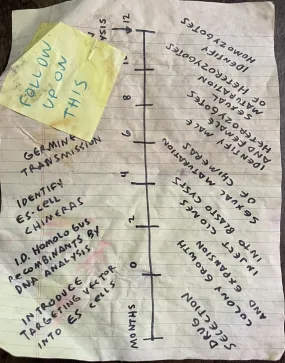 FOLLOW
UP ON
THIS
YSIS
12
8
6
4
2
0
MONTHS
GERMLINE
TRANSMISSION
IDENTIFY
ES-CELL
CHIMERAS
I.D. HOMOLOGUS
RECOMBINANTS BY
DNA ANALYSIS
INTRODUCE
TARGETING VECTOR
INTO ES CELLS
IDENTIFY
HOMOZYGOTES
SEXUAL
MATURATION
OF HETEROZYGOTES
IDENTIFY MALE
AND FEMALE
HETEROZYGOTES
SEXUAL MATURATION
OF CHIMERAS
INJECT CLONES
INTO BLASTOCYSTS
COLONY GROWTH
AND EXPANSION
DRUG
SELECTION